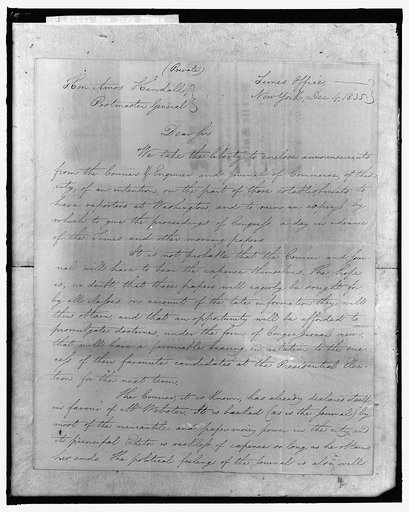 (Private)
Hon Amos Kendall,
Postmaster General
Times Office,
New York, Dec 4, 1835
Dear Sir
We take the liberty to enclose announcements
from the Courier & Enquirer and Journal of Commerce, of this
city, of an intention on the part of those establishments to
have reporters at Washington, and to run an express by
which to give the proceedings of Congress a day in advance
of the Times and other morning papers.
It is not probable that the Courier and Jour-
nal will have to bear the expense themselves. The hope
is, no doubt, that those papers will eagerly be sought for
by all classes on account of the late information they will
thus obtain and that an opportunity will be afforded to
promulgate doctrines, under the form of Congressional news
that will have a favourable bearing in relation to the suc-
cess of their favourite candidates at the Presidential Elec-
tion for the next term.
The Courier, it is known, has already declared itself
in favour of Mr Webster. It is backed (as is the Journal) by
most of the mercantile and paper money power in the city, and
its principal Editor is reckless of expense so long as he attains
his ends. The political feeling of the Journal is also well